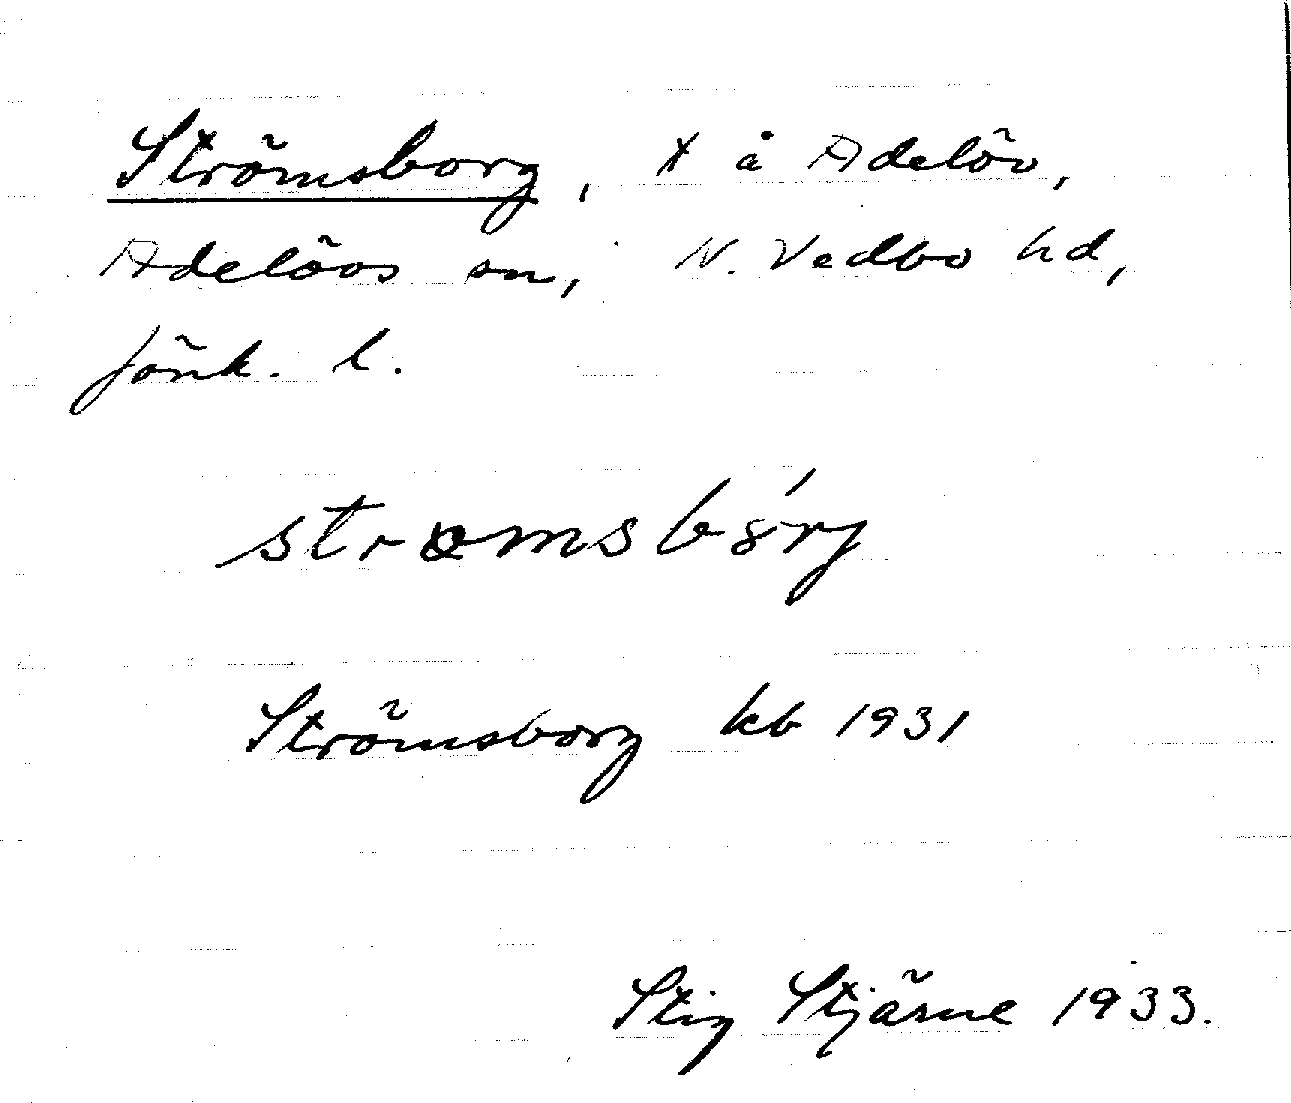 Strömsborg, x å Adelöv,
Adelövs sn, N. Vedbo hd,
Jönk. l.
strɷmsbȣ́rj
Strömsborg kb 1931
Stig Stjärne 1933.